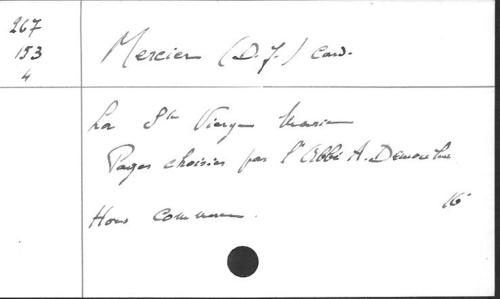 267
153
4
Mercier (D. J.) Card.
La Ste Vierge Marie
Pages choisies par l'Abbé A. Demoulin
16°
Hors commerce.